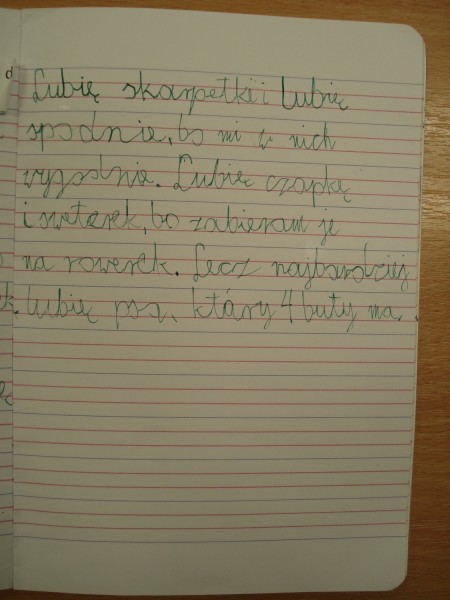 Lubię skarpetki i lubię
spodnie, bo mi w nich
wygodnie. Lubię czapkę
i sweterek, bo zabieram je
na rowerek. Lecz najbardziej
lubię psa, który 4 buty ma.